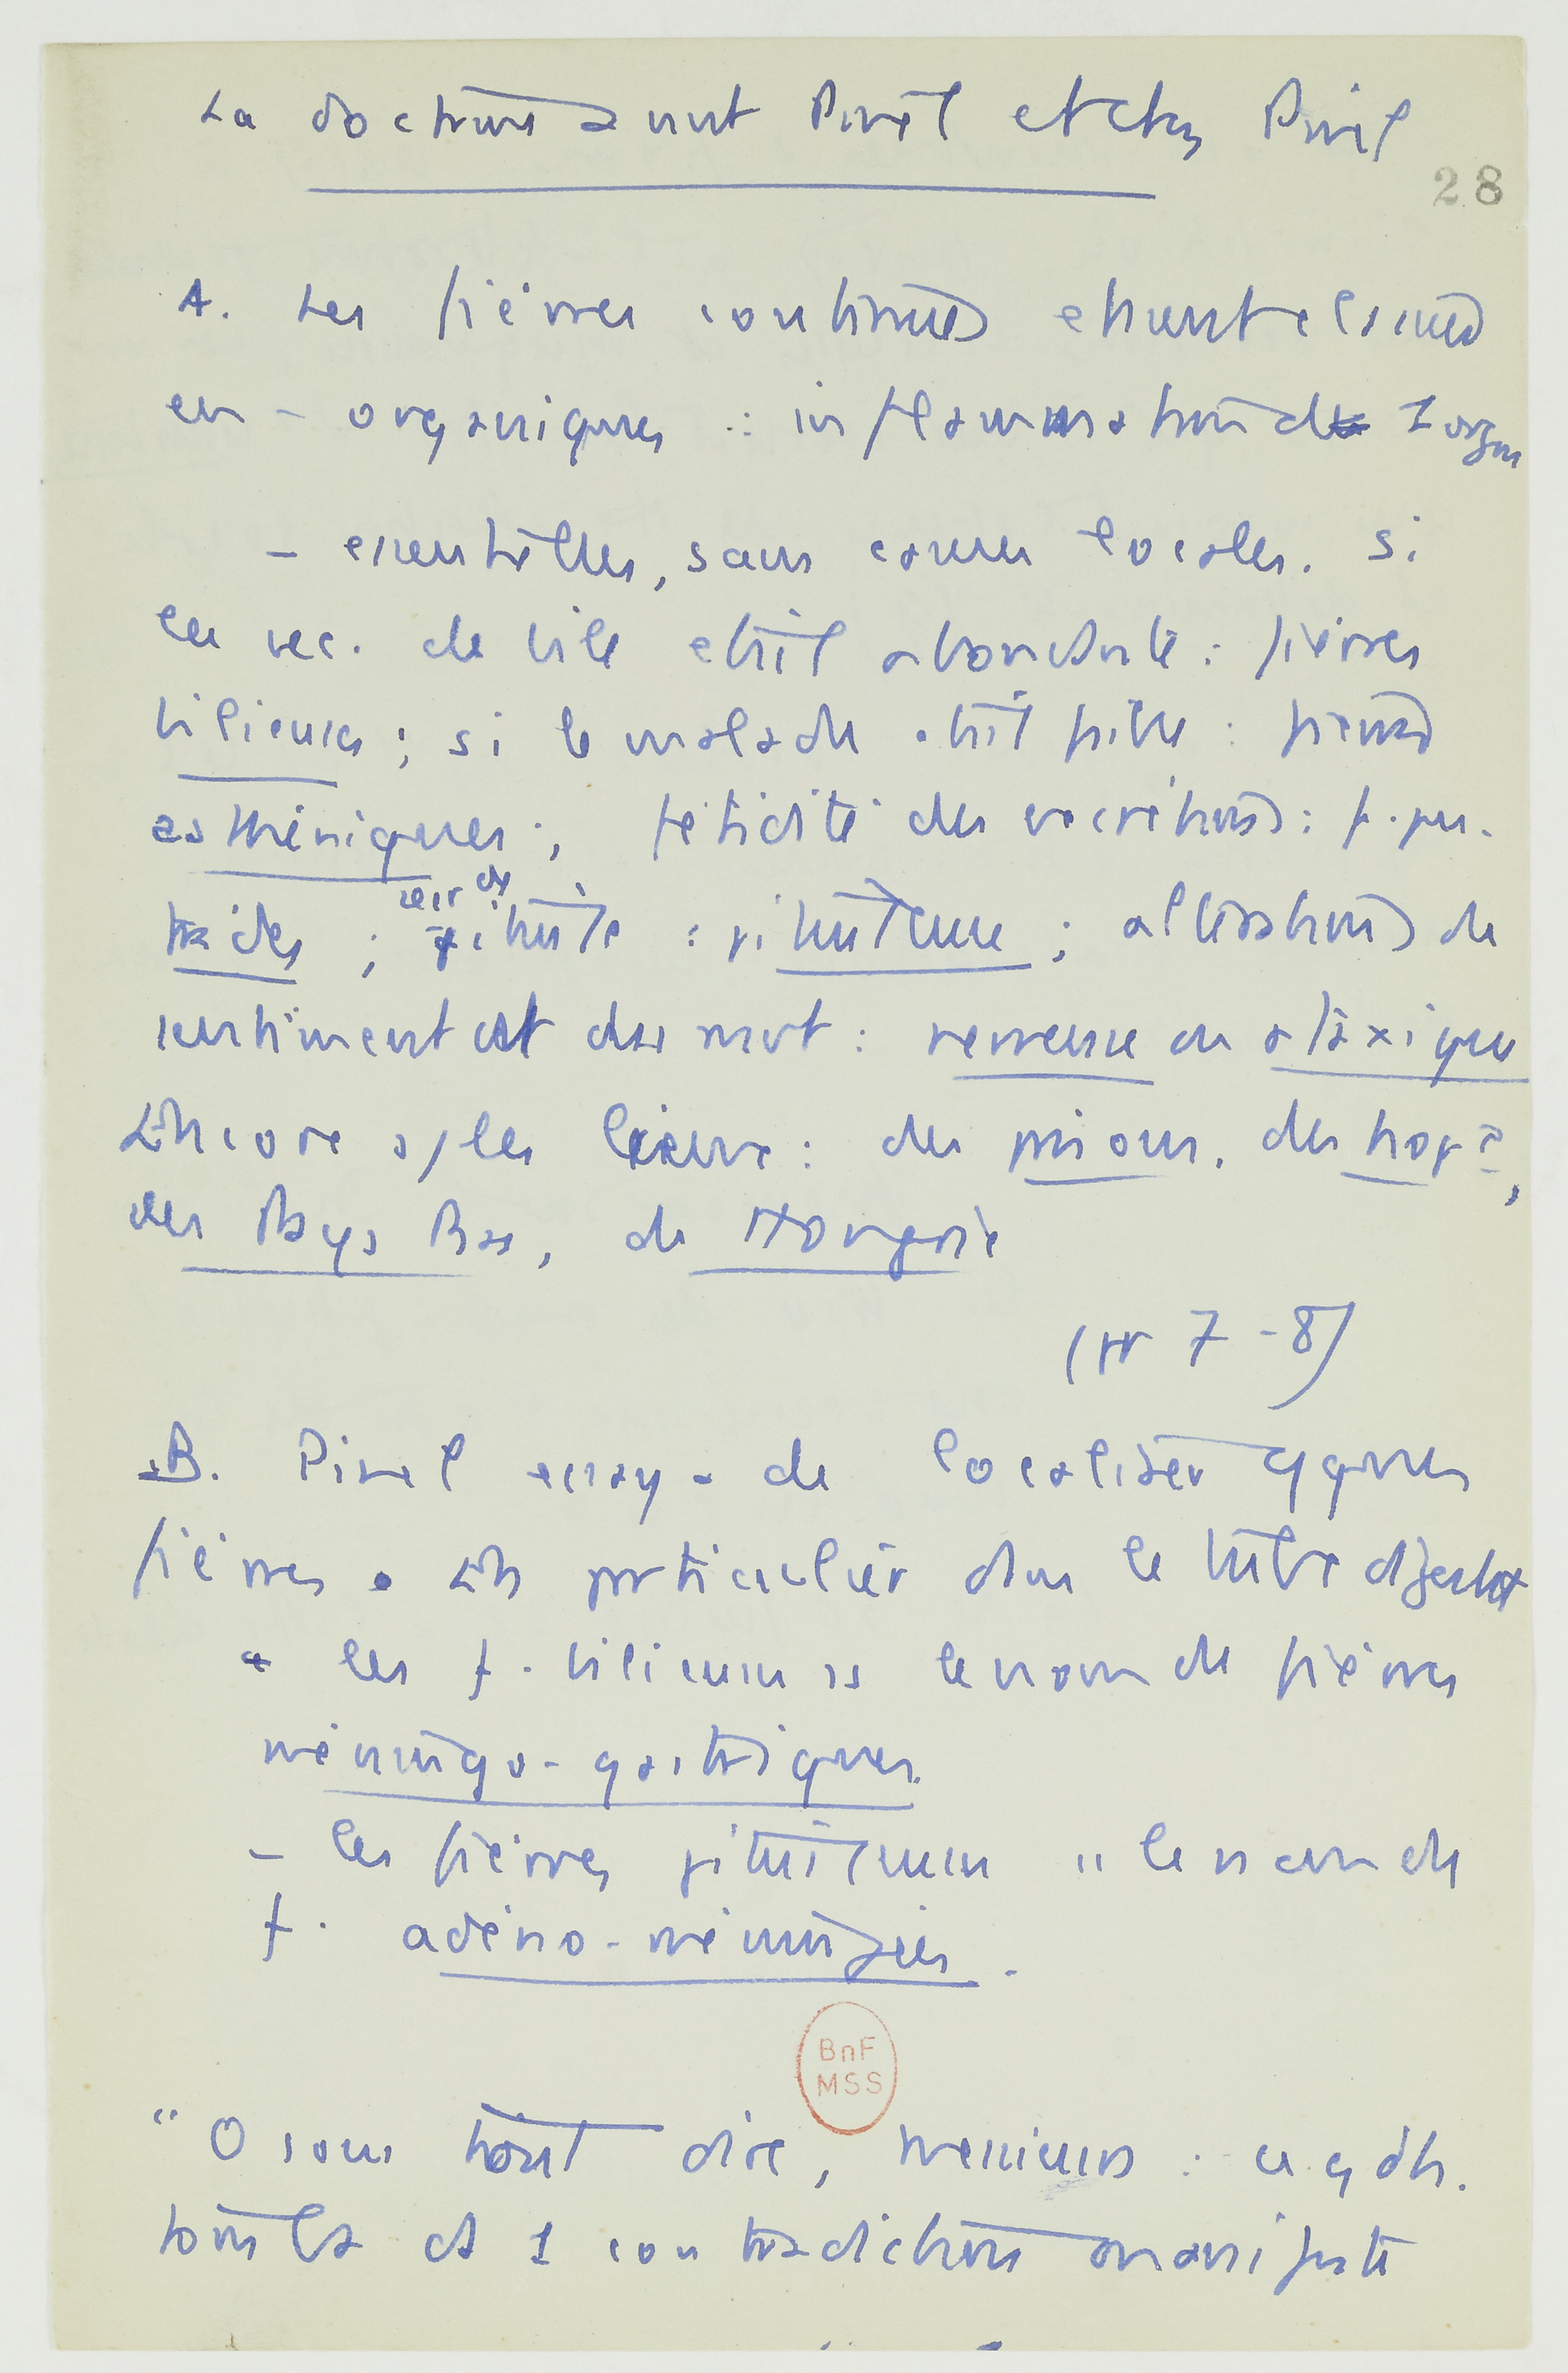 La doctrine avant Pinel et chez Pinel
28
A. Les fièvres continues étaient classées
en - organiques : inflammation d 1 organe
- essentielles, sans causes locales. Si
les sec. de bile était abondante : fièvres
bilieuses ; si le malade était faible : fièvres
asthéniques ; fétidité des excrétions : f. pu-
trides ; secr de pituite : pituiteuse ; altérations de
sentiment et des mvt : nerveuse ou ataxique
Encore a/ les lieux : des prisons, des hôp.,
des Pays Bas, de Hongrie
(pp 7-8)
B. Pinel essaya de localiser qques
fièvres en particulier dans le tube digestif
les f. bilieuses ss le nom de fièvres
méningo-gastriques.
- les fièvres pituiteuses " le nom de
f. adéno-méningées.
BnF
MSS
" O dire, Messieurs :
tomba ds 1 contradiction manifeste